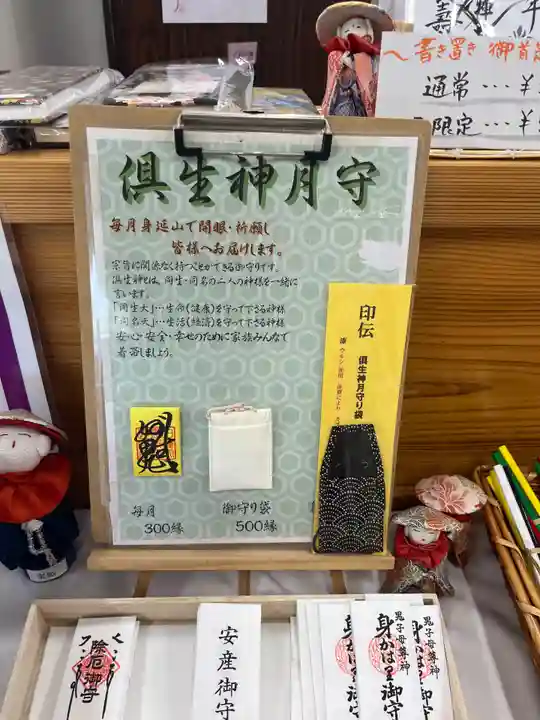 〜書き置き 御首題
通常…¥
限定…¥
倶生神月守
毎月身延山で開眼・祈願し
皆様へお届けします。
宗旨に関係なく持つ事ができる御守りです。
倶生神とは、同生・同名の二人の神様を一緒に
言います。
「同生天」…生命(健康)を守って下さる神様
「同名天」…生活(経済)を守って下さる神様
安心・安全・幸せのために家族みんなで
着帯しましょう。
印伝
倶生神月守り袋
毎月
300縁
御守り袋
500縁
除厄御守
安産御守
鬼子母尊神
身がはり御守
鬼子母尊神
身がはり御守